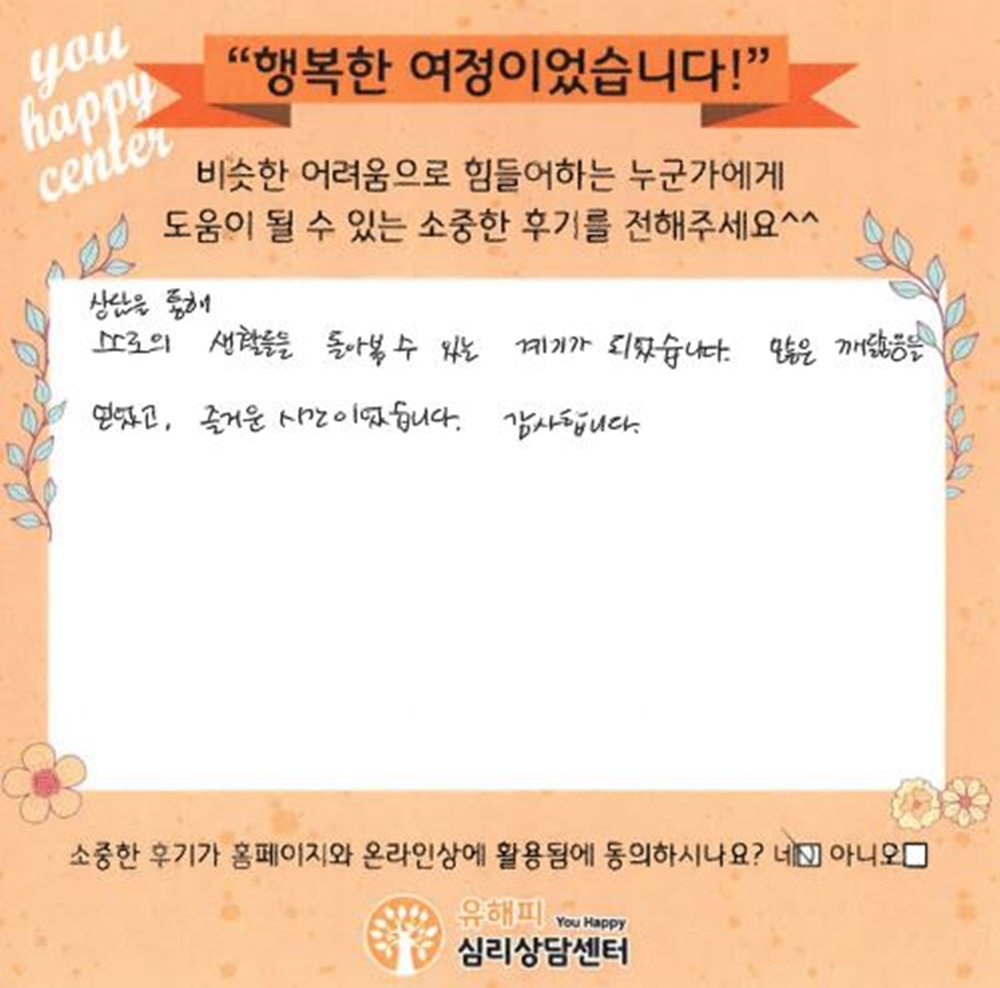 you
happy
center
“행복한 여정이었습니다!”
비슷한 어려움으로 힘들어하는 누군가에게
도움이 될 수 있는 소중한 후기를 전해주세요^^
상담을 통해
스스로의 생활들을 돌아볼 수 있는 계기가 되었습니다. 많은 깨달음을
얻었고, 즐거운 시간이었습니다. 감사합니다.
소중한 후기가 홈페이지와 온라인상에 활용됨에 동의하시나요? 네 아니오
유해피 You Happy
심리상담센터